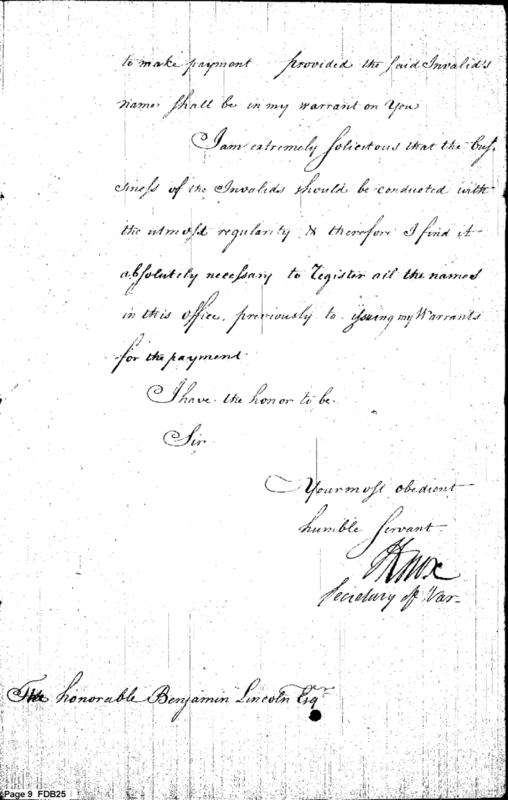 to make payment provided the said Invalids
names shall be in my warrant on You
I am extremely solicitous that the bus,
siness of the Invalids should be conducted with
the utmost regularity & therefore I find it
absolutely necessary to register all the names
in this office, previously to issuing my Warrants
for the payment
I have the honor to be
Sir
Your most obedient
humble Servant
HKnox
Secretary of War
The honorable Benjamin Lincoln Esqr
Page 9 FDB25